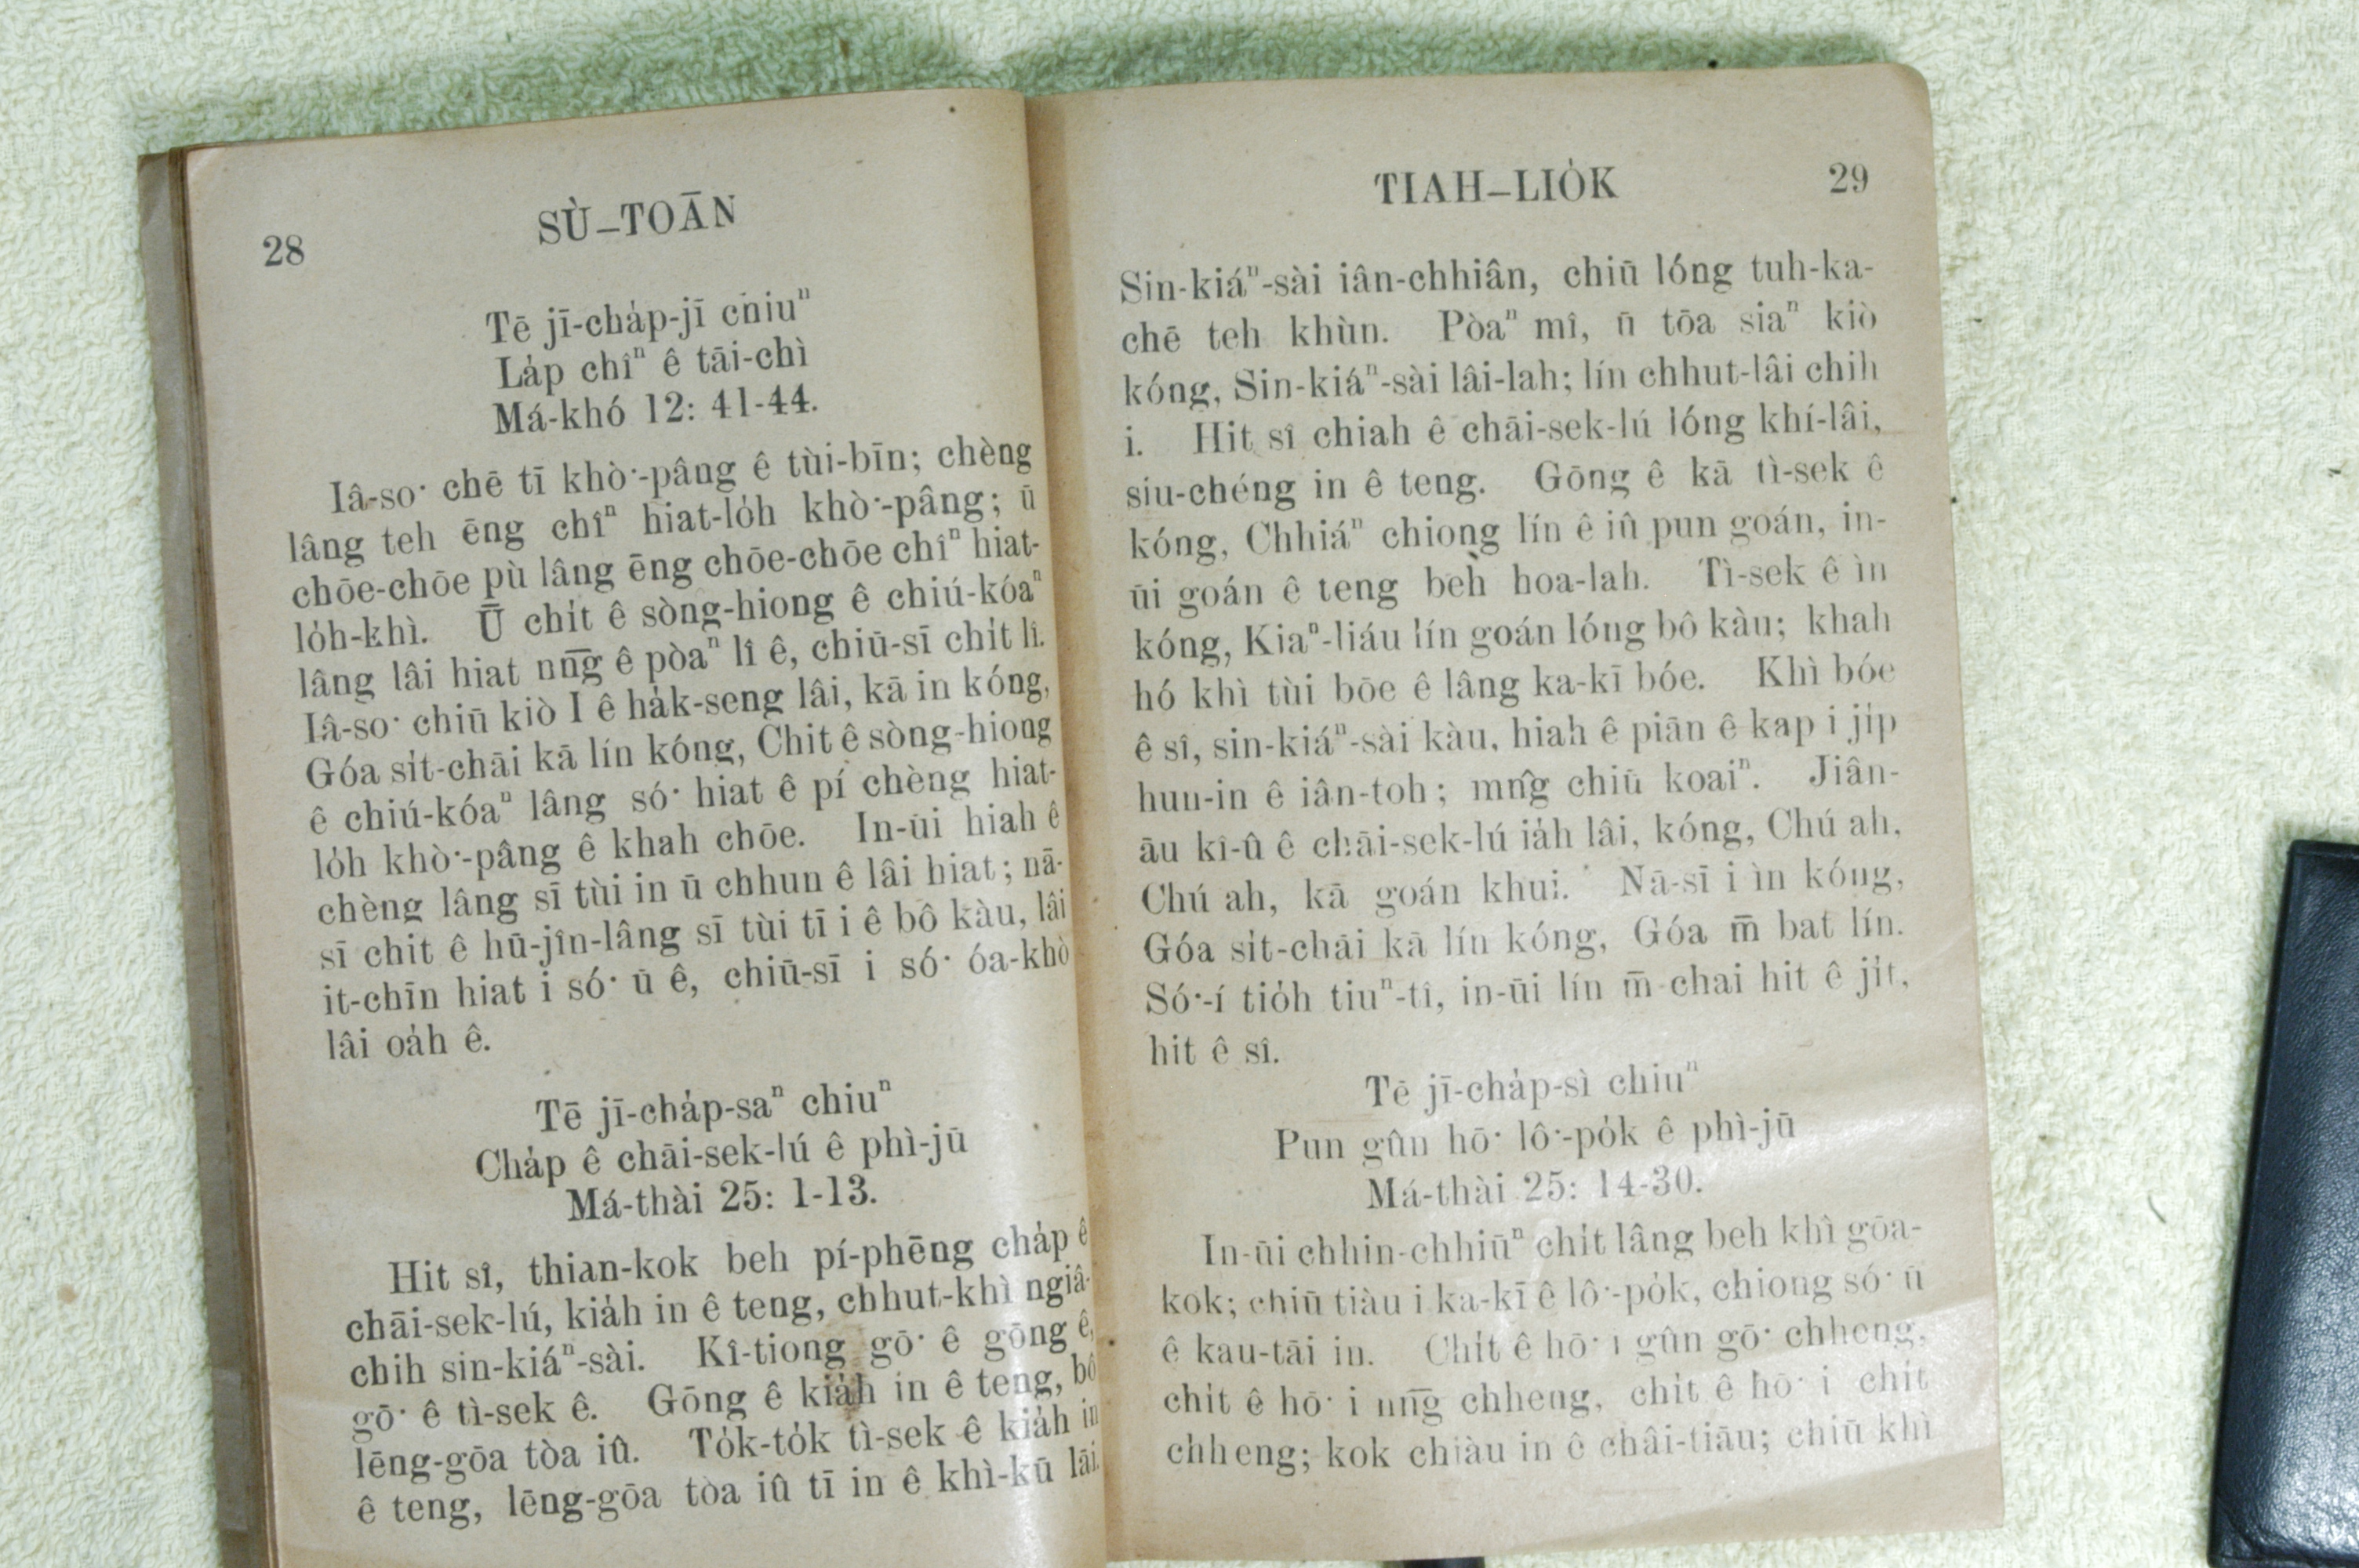 28
SÙ–TOĀN
Tē jī-cha̍p-jī chiuⁿ
La̍p chîⁿ ê tāi-chì
Má-khó 12: 41-44.
Iâ-so͘ chē tī khò͘-pâng ê tùi-bīn; chèng
lâng teh ēng chîⁿ hiat-lo̍h khò͘-pâng; ū
chōe-chōe pù lâng ēng chōe-chōe chîⁿ hiat-
lo̍h-khì. Ū chi̍t ê sòng-hiong ê chiú-kóaⁿ
lâng lâi hiat nn̄g ê pòaⁿ lî ê, chiū-sī chi̍t lî.
Iâ-so͘ chiū kiò I ê ha̍k-seng lâi, kā in kóng,
Góa si̍t-chāi kā lín kóng, Chit ê sòng-hiong
ê chiú-kóaⁿ lâng só͘ hiat ê pí chèng hiat-
lo̍h khò͘-pâng ê khah chōe. In-ūi hiah ê
chèng lâng sī tùi in ū chhun ê lâi hiat; nā-
sī chit ê hū-jîn-lâng sī tùi tī i ê bô kàu, lâi
it-chīn hiat i só͘ ū ê, chiū-sī i só͘ óa-khò
lâi oa̍h ê.
Tē jī-cha̍p-saⁿ chiuⁿ
Cha̍p ê chāi-sek-lú ê phì-jū
Má-thài 25: 1-13.
Hit sî, thian-kok beh pí-phēng cha̍p ê
chāi-sek-lú, kia̍h in ê teng, chhut-khì ngiâ-
chih sin-kiáⁿ-sài. Kî-tiong gō͘ ê gōng ê,
gō͘ ê tì-sek ê. Gōng ê kia̍h in ê teng, bô
lēng-gōa tòa iû. To̍k-to̍k tì-sek ê kia̍h in
ê teng, lēng-gōa tòa iû tī in ê khì-kū lāi.
TIAH–LIO̍K
29
Sin-kiáⁿ-sài iân-chhiân, chiū lóng tuh-ka-
chē teh khùn. Pòaⁿ mî, ū tōa siaⁿ kiò
kóng, Sin-kiáⁿ-sài lâi-lah; lín chhut-lâi chih
i. Hit sî chiah ê chāi-sek-lú lóng khí-lâi,
siu-chéng in ê teng. Gōng ê kā tì-sek ê
kóng, Chhiáⁿ chiong lín ê iû pun goán, in-
ūi goán ê teng beh hoa-lah. Tì-sek ê ìn
kóng, Kiaⁿ-liáu lín goán lóng bô kàu; khah
hó khì tùi bōe ê lâng ka-kī bóe. Khì bóe
ê sî, sin-kiáⁿ-sài kàu, hiah ê piān ê kap i ji̍p
hun-in ê iân-toh; mn̂g chiū koaiⁿ. Jiân-
āu kî-û ê chāi-sek-lú ia̍h lâi, kóng, Chú ah,
Chú ah, kā goán khui. Nā-sī i ìn kóng,
Góa si̍t-chāi kā lín kóng, Góa m̄ bat lín.
Só͘-í tio̍h tiuⁿ-tî, in-ūi lín m̄-chai hit ê ji̍t,
hit ê sî.
Tē jī-cha̍p-sì chiuⁿ
Pun gûn hō͘ lô͘-po̍k ê phì-jū
Má-thài 25: 14-30.
In-ūi chhin-chhiūⁿ chi̍t lâng beh khì gōa-
kok; chiū tiàu i ka-kī ê lô͘-po̍k, chiong só͘ ū
ê kau-tāi in. Chi̍t ê hō͘ i gûn gō͘ chheng,
chi̍t ê hō͘ i nn̄g chheng, chi̍t ê hō͘ i chi̍t
chheng; kok chiàu in ê châi-tiāu; chiū khì